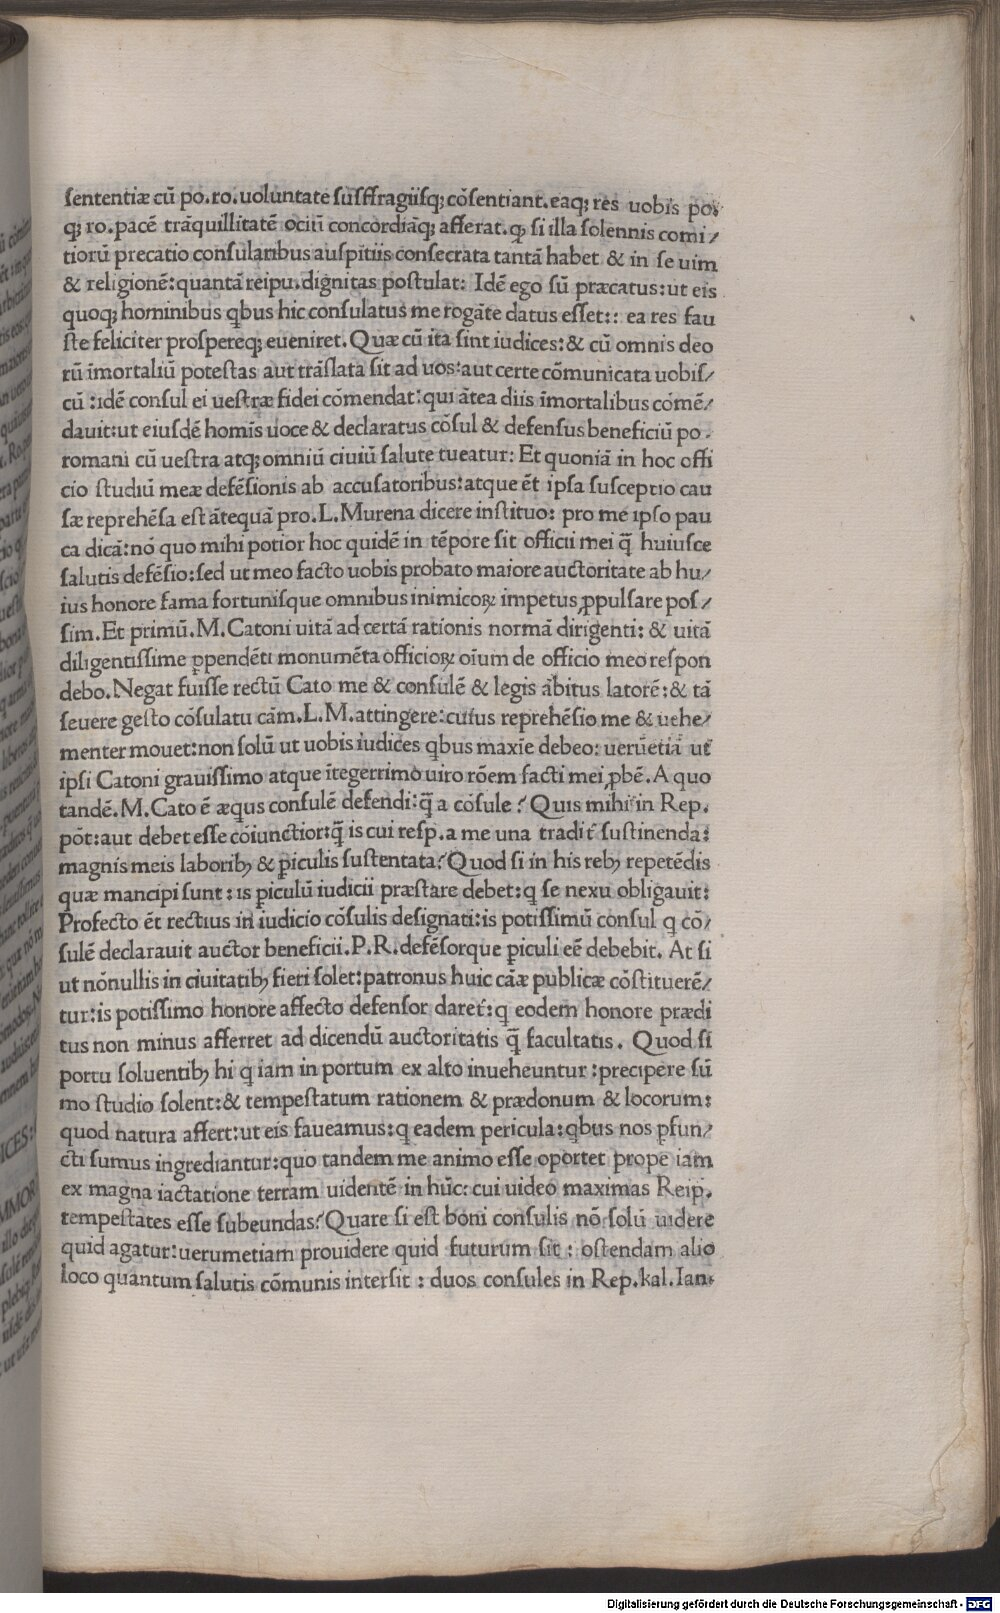 sententiæ cũ po.ro.uoluntate suffragiisq; cõsentiant.eaq; res uobis po,
q; ro.pacẽ trãquillitatẽ ociũ concordiãq; afferat.ꝙ si illa solennis comi/
tiorũ precatio consularibus auspitiis consecrata tantã habet & in se uim
& religionẽ:quantã reipu.dignitas postulat: Idẽ ego sũ præcatus:ut eis
quoq; hominibus qbus hic consulatus me rogãte datus esset:: ea res fau
ste feliciter prospereq; eueniret. Quæ cũ ita sint iudices:& cũ omnis deo
rũ ĩmortaliũ potestas aut trãslata sit ad uos:aut certe cõmunicata uobis/
cũ :idẽ consul ei uestræ fidei cõmendat:qui ãtea diis ĩmortalibus cõmẽ/
dauit:ut eiusdẽ homis uoce & declaratus cõsul & defensus beneficiũ po .
romani cũ uestra atq; omniũ ciuiũ salute tueatur: Et quoniã in hoc offi
cio studiũ meæ defẽsionis ab accusatoribus:atque ẽt ipsa susceptio cau
sæ reprehẽsa est ãtequã pro.L.Murena dicere instituo: pro me ipso pau
ca dicã:nõ quo mihi potior hoc quidẽ in tẽpore sit officii mei q̃ huiusce
salutis defẽsio:sed ut meo facto uobis probato maiore auctoritate ab hu/
ius honore fama fortunisque omnibus inimicoꝝ impetus ꝓpulsare pos /
sim.Et primũ.M.Catoni uitã ad certã rationis normã dirigenti: & uitã
diligentissime ꝑpendẽti monumẽta officioꝝ oĩum de officio meo respon
debo.Negat fuisse rectũ Cato me & consulẽ & legis ãbitus latorẽ:& tã
seuere gesto cõsulatu cãm.L.M.attingere:cuius reprehẽsio me & uehe/
menter mouet:non solũ ut uobis iudices qbus maxĩe debeo: uerũetiã ut
ipsi Catoni grauissimo atque ĩtegerrimo uiro rõem facti mei ꝓbẽ.A quo
tandẽ.M.Cato ẽ æqus consulẽ defendi:q̃ a cõsule ? Quis mihi in Rep.
põt:aut debet esse cõiunctior:q̃ is cui resp.a me una tradit̃ sustinenda:
magnis meis laborib; & ꝑiculis sustentata? Quod si in his reb; repetẽdis
quæ mancipi sunt : is ꝑiculũ iudicii præstare debet:q se nexu obligauit:
Profecto ẽt rectius in iudicio cõsulis designati:is potissimũ consul q cõ/
sulẽ declarauit auctor beneficii.P.R.defẽsorque ꝑiculi eẽ debebit. At si
ut nõnullis in ciuitatib; fieri solet:patronus huic cãæ publicæ cõstituerẽ/
tur:is potissimo honore affecto defensor daret̃:q eodem honore prædi
tus non minus afferret ad dicendũ auctoritatis q̃ facultatis. Quod si
portu soluentib; hi q iam in portum ex alto inueheuntur :precipere sũ
mo studio solent:& tempestatum rationem & prædonum & locorum:
quod natura affert:ut eis faueamus:q eadem pericula:qbus nos ꝑfun/
cti sumus ingrediantur:quo tandem me animo esse oportet prope iam
ex magna iactatione terram uidentẽ in hũc: cui uideo maximas Reip.
tempestates esse subeundas? Quare si est boni consulis nõ solũ uidere
quid agatur:uerumetiam prouidere quid futurum sit : ostendam alio
loco quantum salutis cõmunis intersit : duos consules in Rep.kal.Ian.
Digitalisierung gefördert durch die Deutsche Forschungsgemeinschaft - DFG